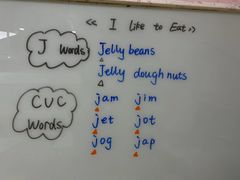 << I like to Eat >>
J words
Jelly beans
Jelly doughnuts
CVC words
jam jim
jet jot
jog jap